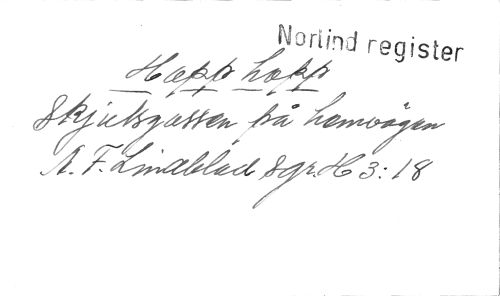 Norlind register
Hopp hopp
Skjutsgossen på hemvägen
A. F. Lindblad Sgr. H 3:18